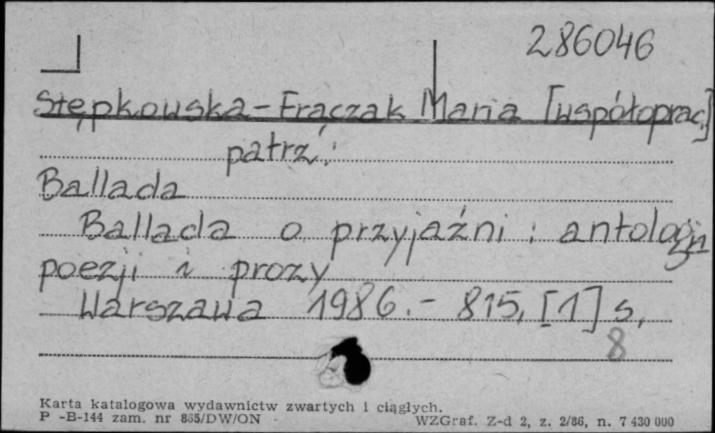 286046
Stępkowska-Frączak Maria [współoprac.]
patrz:
Ballada
Ballada o przyjaźni : antologia
poezji i prozy
Warszawa 1986.- 815, [1] s.
8
Karta katalogowa wydawnictw zwartych i ciągłych.
P -B-144 zam. nr 865/DW/ON
WZGraf. Z-d 2, z. 2/86, n. 7 430 000